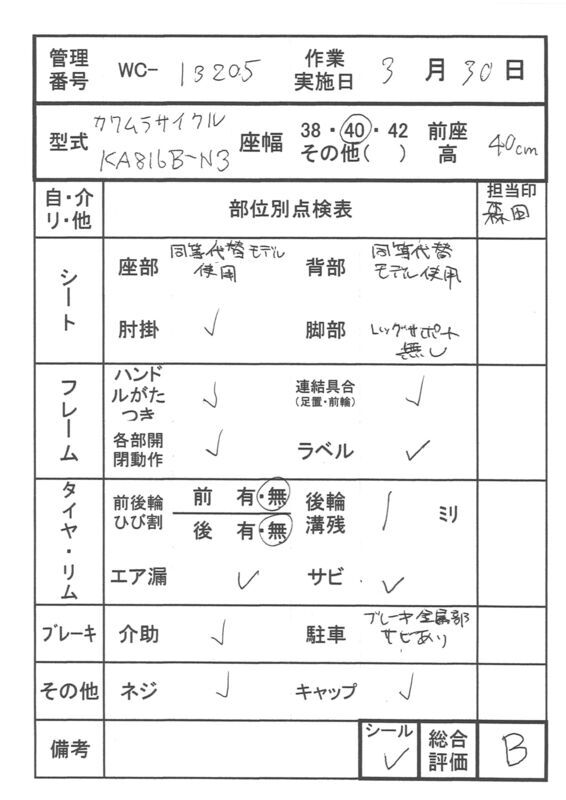 管理番号 WC- 13205 作業実施日 3月30日
型式 カワムラサイクル KA816B-N3 座幅 38・40・42 その他( ) 前座高 40cm
自・介リ・他 部位別点検表 担当印 森田
シート 座部 同等代替モデル使用 背部 同等代替モデル使用
肘掛 ✓ 脚部 レッグサポート無し
フレーム ハンドルがたつき ✓ 連結具合(足置・前輪) ✓
各部開閉動作 ✓ ラベル ✓
タイヤ・リム 前後輪ひび割 前 有・無 後輪溝残 1 ミリ
後 有・無
エア漏 ✓ サビ ✓
ブレーキ 介助 ✓ 駐車 ブレーキ金属部サビあり
その他 ネジ ✓ キャップ ✓
備考 シール ✓ 総合評価 B